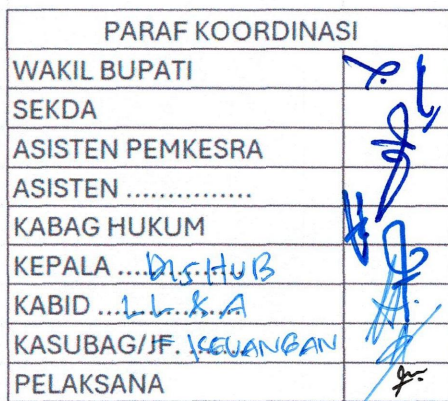 PARAF KOORDINASI
WAKIL BUPATI
SEKDA
ASISTEN PEMKESRA
ASISTEN ...............
KABAG HUKUM
KEPALA ....DISHUB
KABID ....LL & A
KASUBAG/JF. KEUANGAN
PELAKSANA